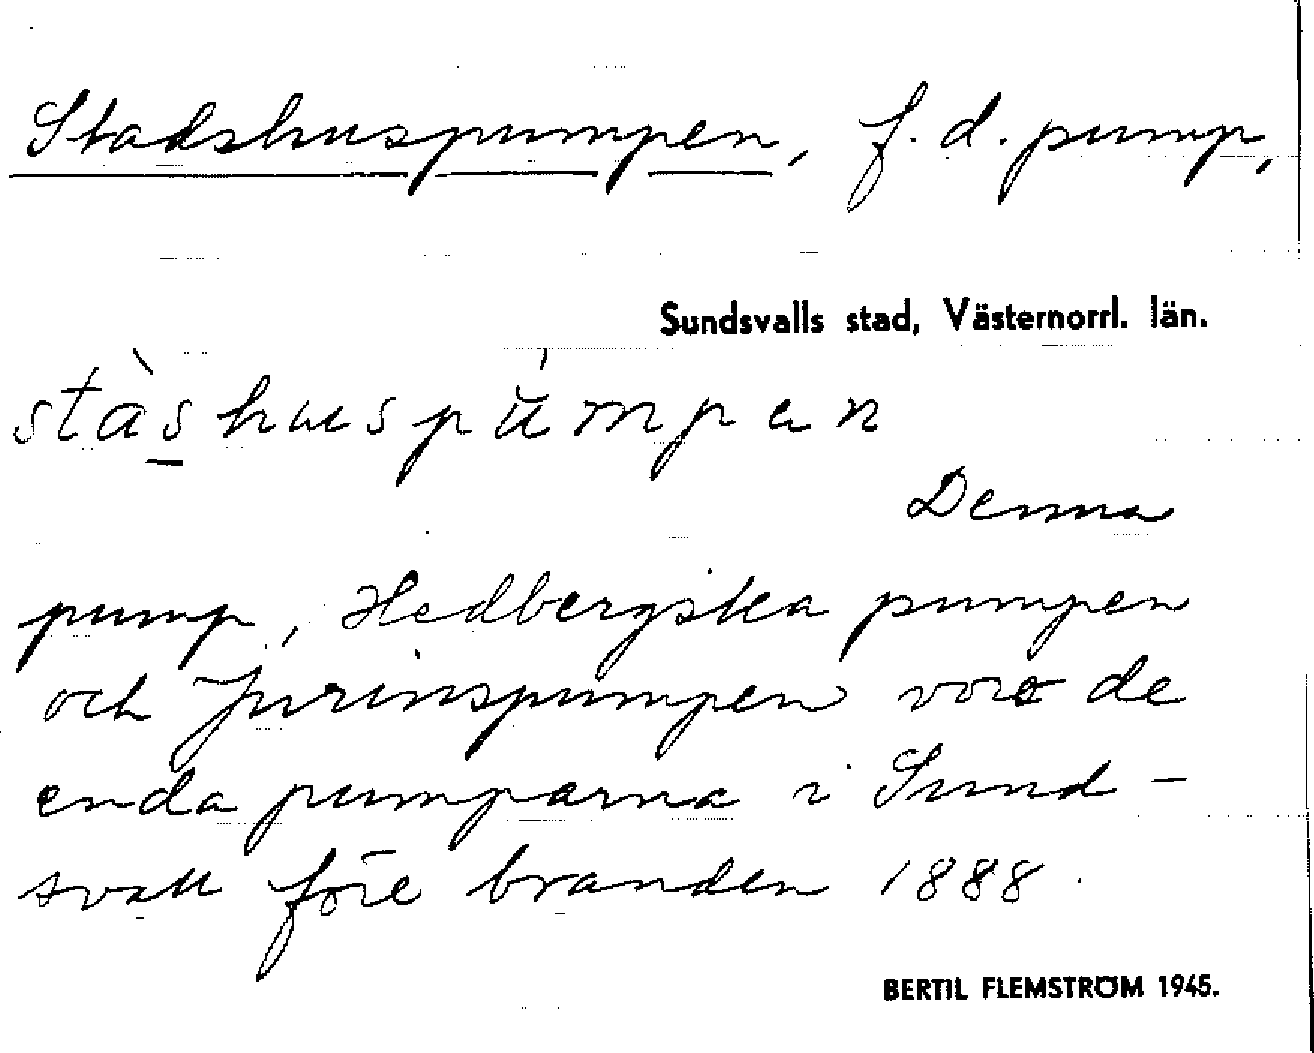 Stadshuspumpen, f. d. pump,
Sundsvalls stad, Västernorrl. län.
stàshuspúmpen
Denna
pump, Hedbergska pumpen
och Jurinspumpen voro de
enda pumparna i Sund-
svall före branden 1888.
BERTIL FLEMSTRÖM 1945.